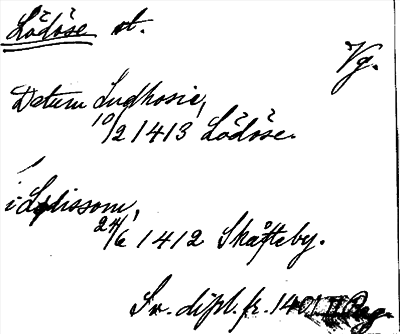 Lödöse st.
Vg.
Datum Ludhosie,
10/2 1413 Lödöse.
i Lydissom,
24/6 1412 Skäfteby.
Sv. dipl. fr. 1401 II Reg.